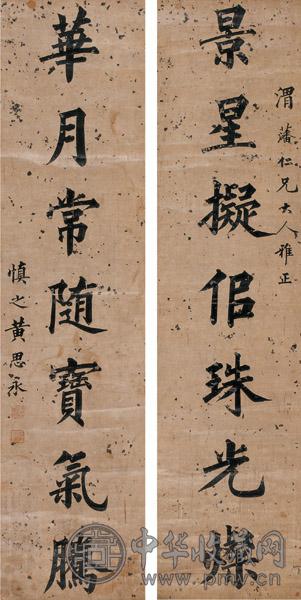 渭藩仁兄大人雅正
景星擬侣珠光燦
華月常隨寶氣騰
慎之黄思永
中华收藏网
www.pmv.cn